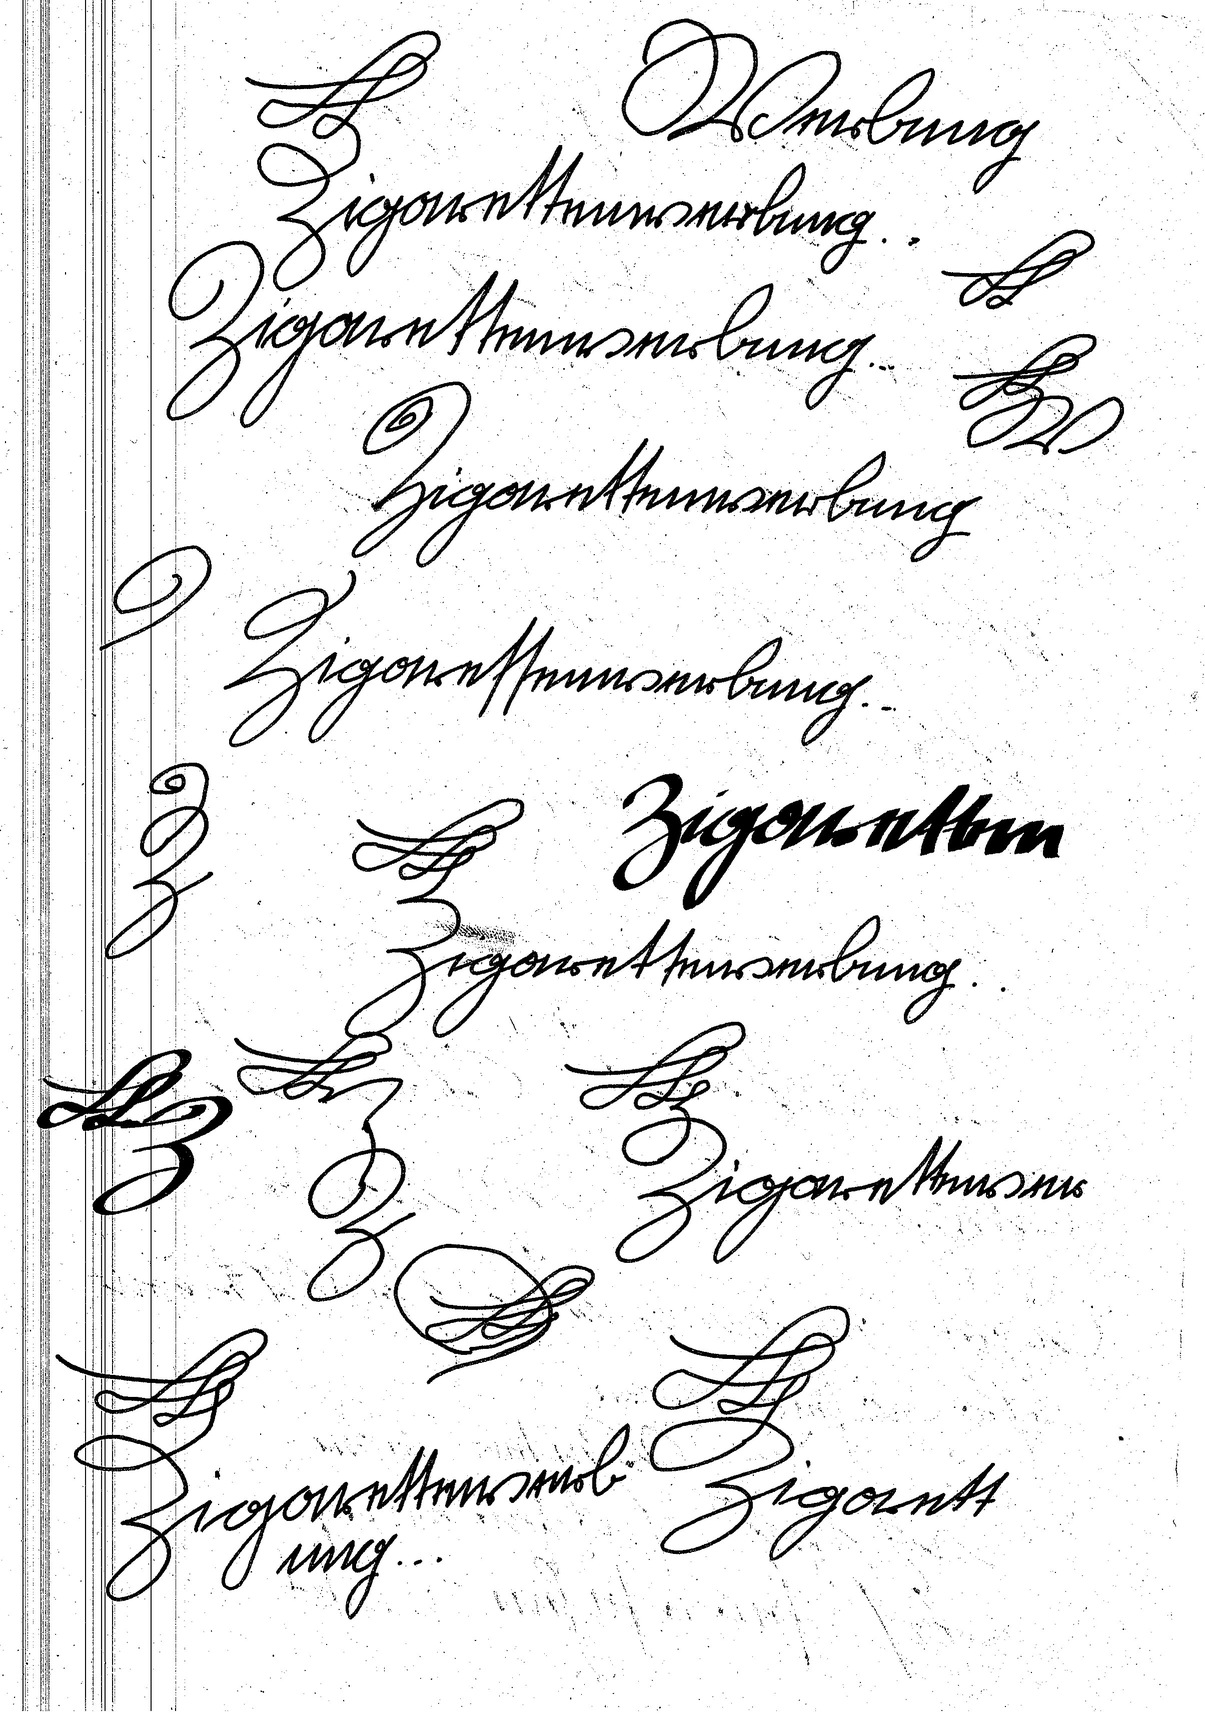 Werbung
Zigarettenwerbung..
Zigarettenwerbung...
W
Zigarettenwerbung
Zigarettenwerbung..
Z
Zigaretten
Zigarettenwerbung..
Z
Z
Zigarettenwer
Zigarettenwerb
ung...
Zigarett